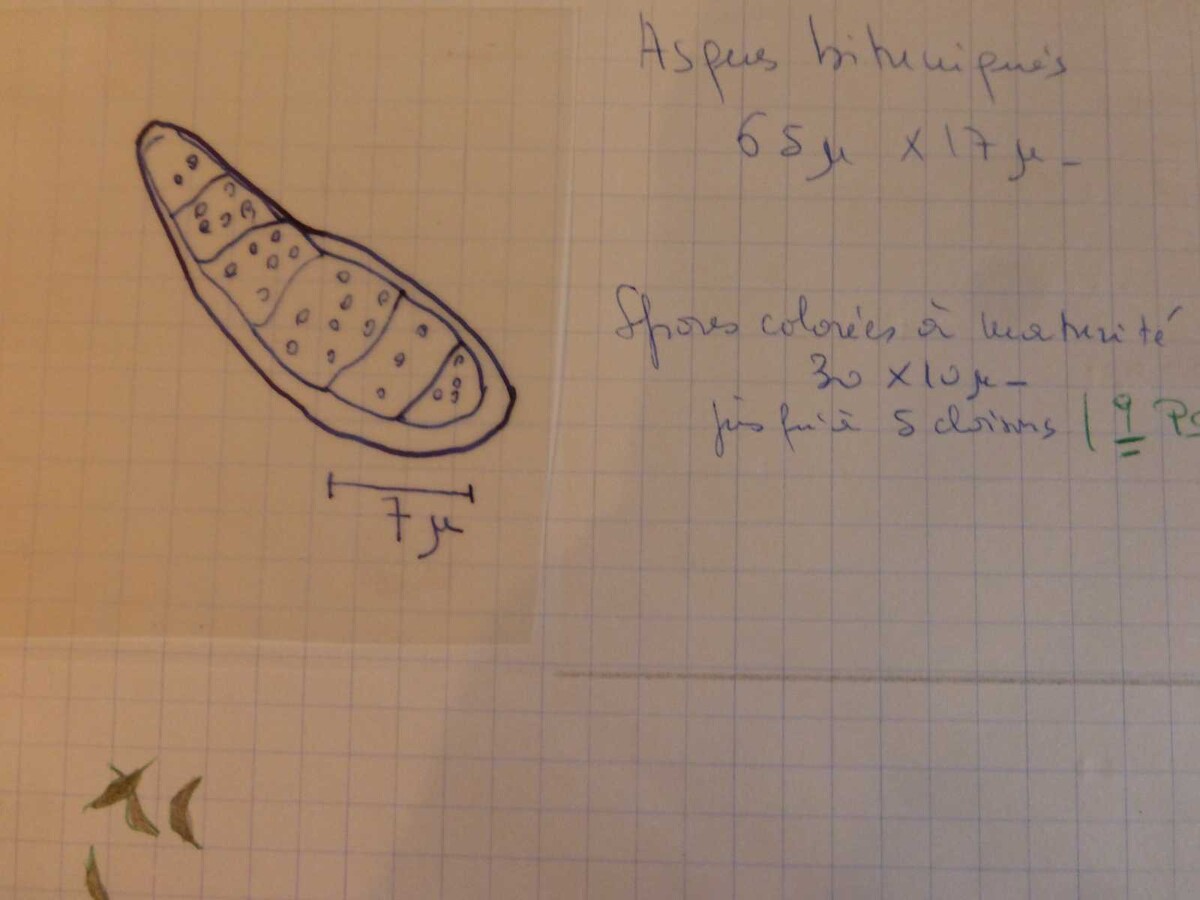 Asques bituniqués
65µ × 17µ -
Spores colorées à maturité
30 × 10µ -
jusqu'à 5 cloisons (9
7µ